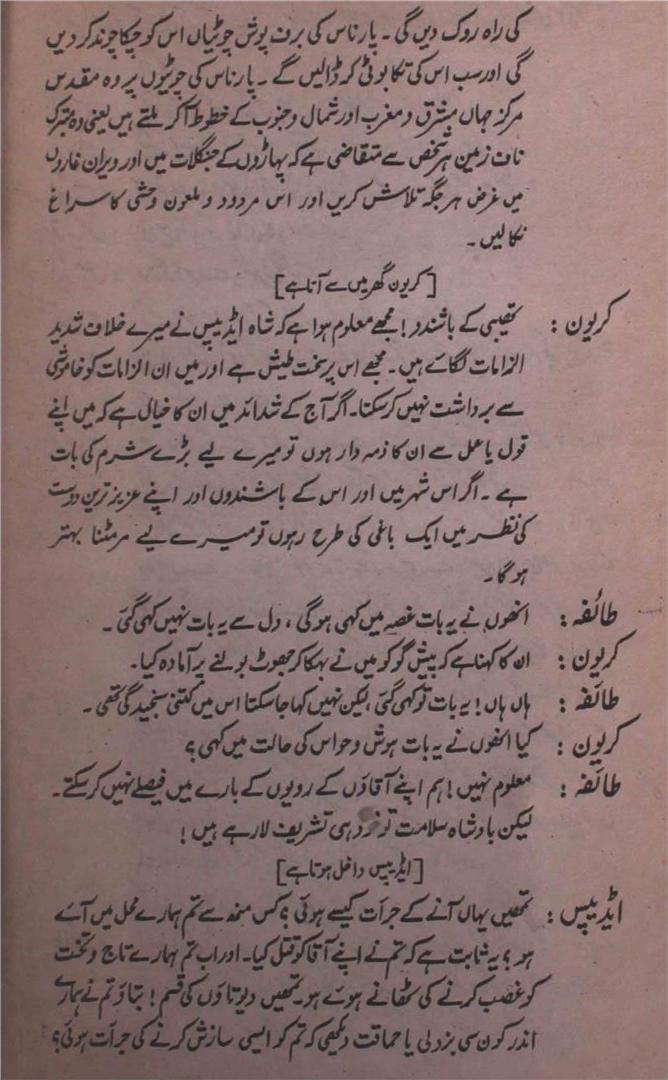 کی راہ روک دیں گی ۔ پارناس کی برف پوش چوٹیاں اس کو چکا چوند کر دیں
گی اور سب اس کی تکا بوٹی کر ڈالیں گے ۔ پارناس کی چوٹیوں پر وہ مقدس
مرکز جہاں مشرق و مغرب اور شمال و جنوب کے خطوط آکر ملتے ہیں یعنی وہ متبرک
ناف زمین ہر شخص سے متقاضی ہے کہ پہاڑوں کے جنگلات میں اور ویران غاروں
میں غرض ہر جگہ تلاش کریں اور اس مردود و ملعون وحشی کا سراغ
نکالیں ۔
[کریون گھر میں سے آتا ہے]
کریون : تھیبی کے باشندو ! مجھے معلوم ہوا ہے کہ شاہ ایڈیپس نے میرے خلاف شدید
الزامات لگائے ہیں ۔ مجھے اس پر سخت طیش ہے اور میں ان الزامات کو خاموشی
سے برداشت نہیں کر سکتا۔ اگر آج کے شدائد میں ان کا خیال ہے کہ میں اپنے
قول یا عمل سے ان کا ذمہ دار ہوں تو میرے لیے بڑے شرم کی بات
ہے ۔ اگر اس شہر میں اور اس کے باشندوں اور اپنے عزیز ترین دوست
کی نظر میں ایک باغی کی طرح رہوں تو میرے لیے مر مٹنا بہتر
ہو گا ۔
طائفہ : انھوں نے یہ بات غصہ میں کہی ہو گی ، دل سے یہ بات نہیں کہی گئی ۔
کریون : ان کا کہنا ہے کہ پیش گو کو میں نے بہکا کر جھوٹ بولنے پر آمادہ کیا۔
طائفہ : ہاں ہاں ! یہ بات تو کہی گئی لیکن نہیں کہا جا سکتا اس میں کتنی سنجیدگی تھی ۔
کریون : کیا انھوں نے یہ بات ہوش و حواس کی حالت میں کہی ؟
طائفہ : معلوم نہیں ! ہم اپنے آقاؤں کے رویوں کے بارے میں فیصلے نہیں کر سکتے ۔
لیکن بادشاہ سلامت تو خود ہی تشریف لا رہے ہیں !
[ایڈیپس داخل ہوتا ہے]
ایڈیپس : تمھیں یہاں آنے کے جرأت کیسے ہوئی ؟ کس منھ سے تم ہمارے محل میں آئے
ہو ؟ یہ ثابت ہے کہ تم نے اپنے آقا کو قتل کیا۔ اور اب تم ہمارے تاج و تخت
کو غصب کرنے کی ٹھانے ہوئے ہو۔ تمھیں دیوتاؤں کی قسم ! بتاؤ تم نے ہمارے
اندر کون سی بزدلی یا حماقت دیکھی کہ تم کو ایسی سازش کرنے کی جرأت ہوئی ؟